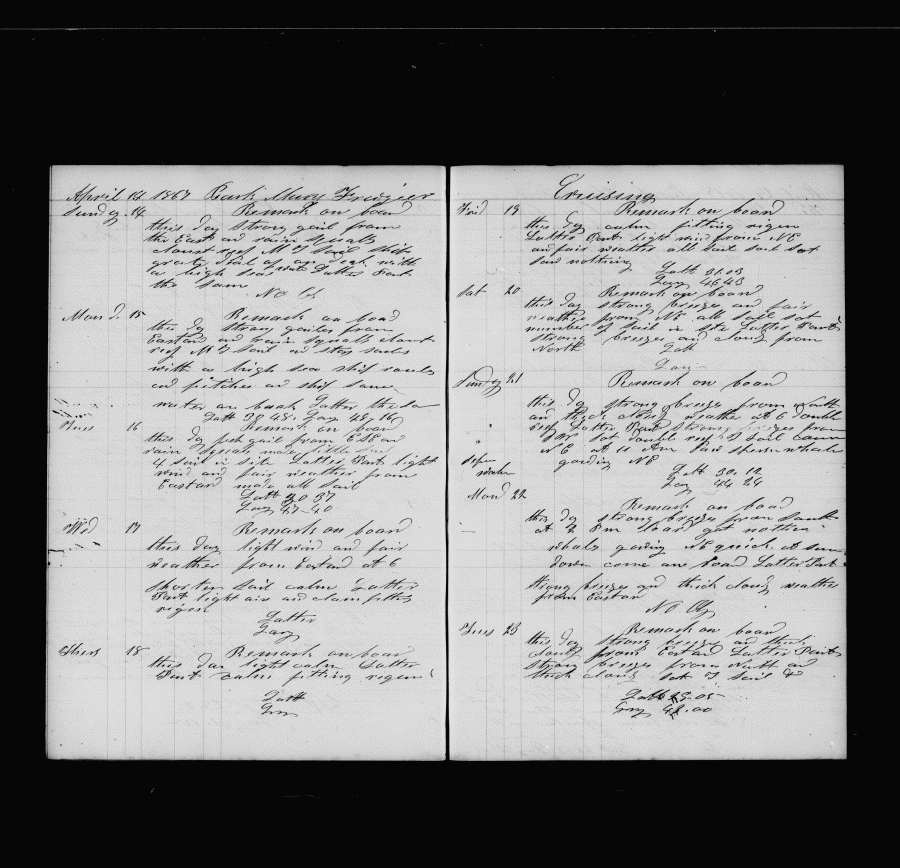 April 14 1867 Bark Mary Frazier
Sund y. 14 Remark on boad
this day strong gail from
the East an rain squals
close reef M T Sail ship
grate deal of on deck with
a high sea Latter Part
the same
No Ob
Mond. 15 Remark on boad
this dy strong gailes from
Eastard an rain squals close
reef M T Sail an stay sails
with a high sea ship roales
an pitches an ship some
water on
Latt 30 45. Long 48-16
Tues 16 Remark on boad
this dy fresh gail from
rain squals made
4 sail in site Latter Part light
wind and fair weather from
Eastard made all sail
Latt 30 37
Long 47-40
Wed 17 Remark on boad
this day light wind and fair
weather from Eastad at 6
shorten sail calm Latter
Part light air an fitting
rigen
Latter
Long
Thurs 18 Remark on board
this day light calm Latter
Part calm fitting rigen
Latt
Long
Cruising
Frid 19 Remark on board
this dy calm fitting rigen
Latter Part light wind from NE
an fair weather all sail sot
saw nothing
Latt 31.03
Long 46 43
Sat 20 Remark on board
this day strong breeze and fair
weather from NE all sail sot
number of sail in site Latter Part
strong breezes and cloudy from
North
Latt
Long
Sunday 21 Remark on board
this day strong breeze from South
an thick cloudy weather at 6 double
reef Latter Part strong breezes from
sot double reef T Sail
NE at 11 Am saw sperm whale
goading NE
sperm
whale
Latt 30. 12
Long 44 24
Mond 22 Remark on boad
this day strong breeze from
at 2 Pm loar got nothin
whales goaing NE quick at sun
down come on board Latter Part
strong breezes and thick cloudy weather
from Eastan
No Ob
Tues 23 Remark on board
this day strong breeze and thick
cloudy from Eastard Latter Part
strong breeze from North an
thick cloudy sot T sail
Latt 29-05
Long 42.00